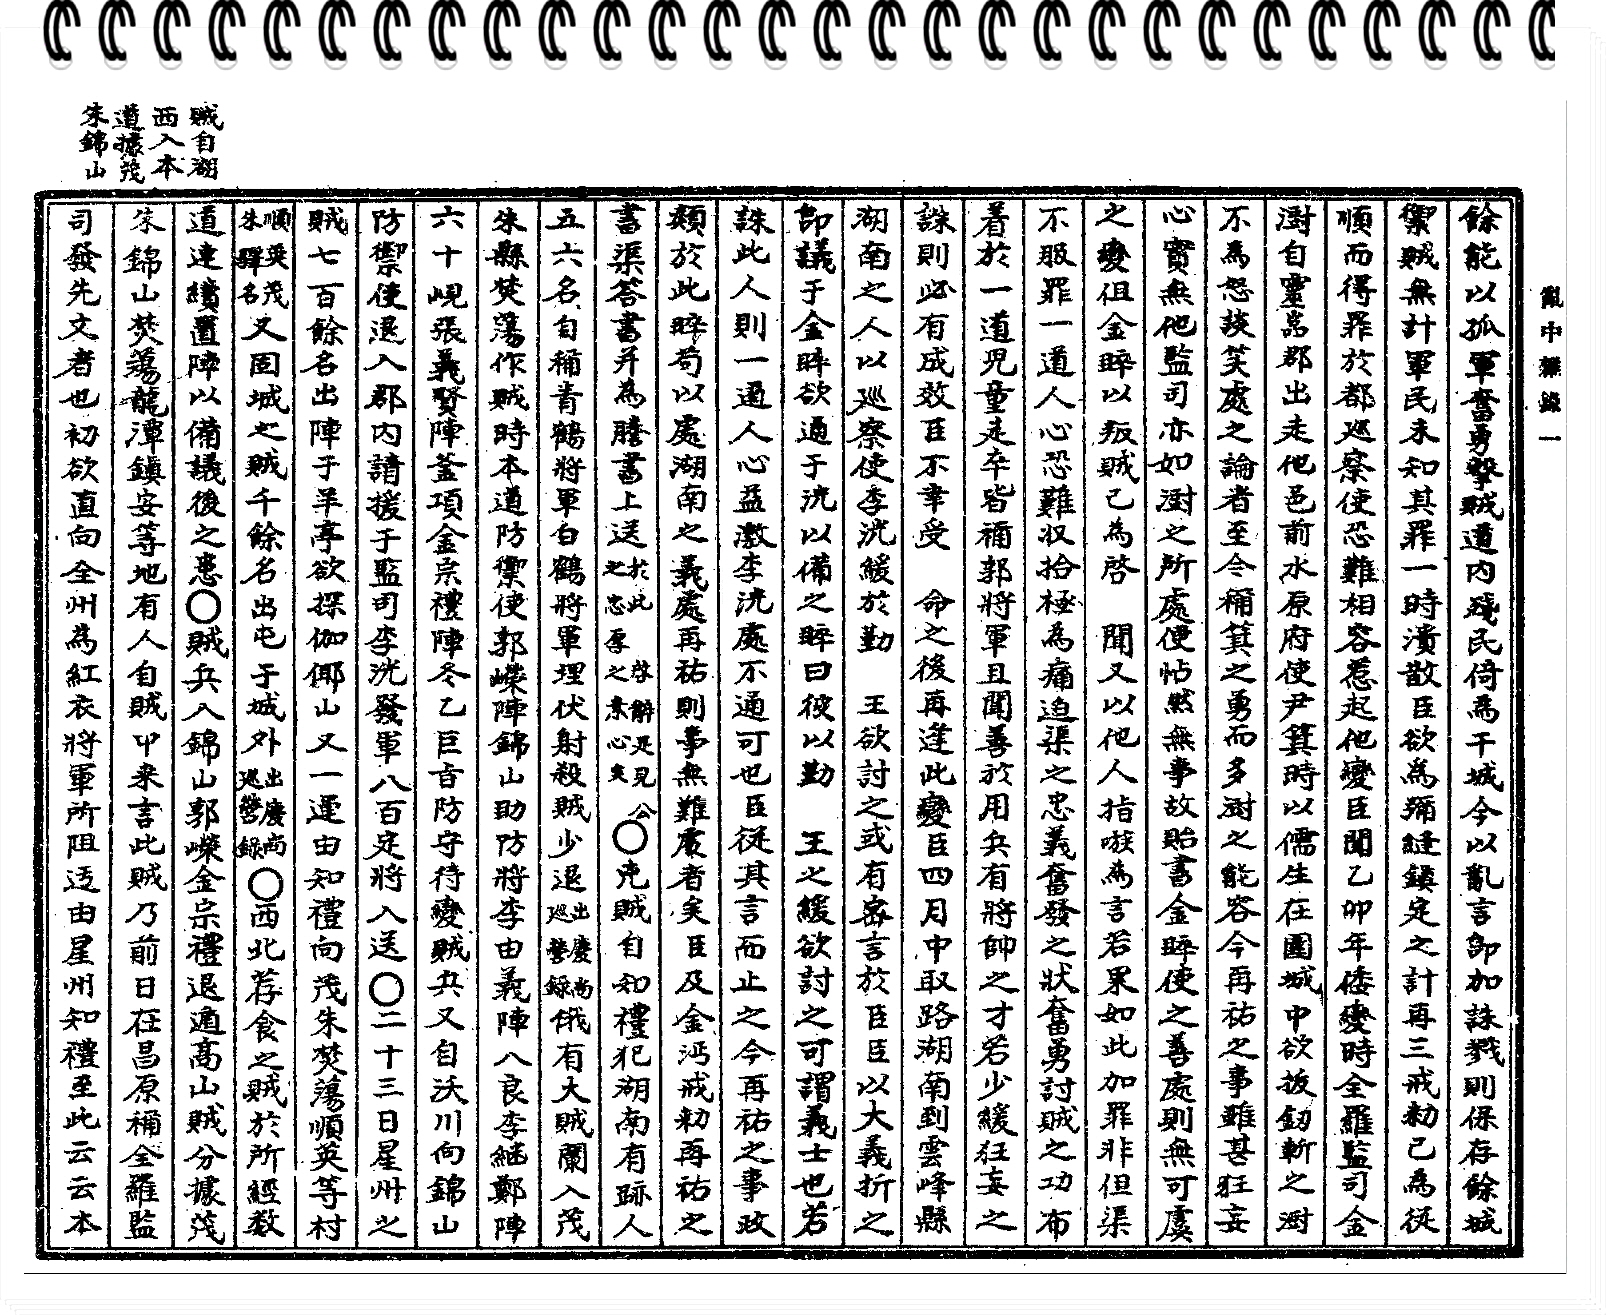 亂中雜錄一
餘能以孤軍奮勇擊賊道內殘民倚為干城今以亂言卽加誅戮則保存餘城
禦賊無計軍民未知其罪一時潰散臣欲為彌縫鎭定之計再三戒勑已為從
順而得罪於都巡察使恐難相容惹起他變臣聞乙卯年倭變時全羅監司金
澍自靈嵓郡出走他邑前水原府使尹箕時以儒生在圍城中欲拔釰斬之澍
不為怒談笑處之論者至今稱箕之勇而多澍之能容今再祐之事雖甚狂妄
心實無他監司亦如澍之所處便帖然無事故貽書金睟使之善處則無可虞
之變但金睟以叛賊已為啓 聞又以他人指嗾為言若果如此加罪非但渠
不服罪一道人心恐難収拾極為痛迫渠之忠義奮發之狀奮勇討賊之功布
着於一道兒童走卒皆稱郭將軍且聞善於用兵有將帥之才若少緩狂妄之
誅則必有成效臣不幸受 命之後再逢此變臣四月中取路湖南到雲峰縣
湖南之人以巡察使李洸緩於勤 王欲討之或有密言於臣臣以大義折之
卽議于金睟欲通于洸以備之睟曰彼以勤 王之緩欲討之可謂義士也若
誅此人則一道人心益激李洸處不通可也臣從其言而止之今再祐之事政
類於此睟苟以處湖南之義處再祐則事無難處者矣臣及金沔戒勑再祐之
書渠答書幷為謄書上送於此啓辭足見公之忠厚之素心矣○兇賊自知禮犯湖南有跡人
五六名自稱靑鶴將軍白鶴將軍埋伏射殺賊少退出慶尙巡營錄俄有大賊闌入茂
朱縣焚蕩作賊時本道防禦使郭嶸陣錦山助防將李由義陣八良李継鄭陣
六十峴張義賢陣釜項金宗禮陣冬乙巨旨防守待變賊兵又自沃川向錦山
防禦使退入郡內請援于監司李洸發軍八百定將入送○二十三日星州之
賊七百餘名出陣于羊亭欲探伽倻山又一運由知禮向茂朱焚蕩順英等村
順英茂朱驛名又固城之賊千餘名出屯于城外出慶尙巡營錄○西北荐食之賊於所經教
道連續置陣以備議後之患○賊兵入錦山郭嶸金宗禮退遁高山賊分據茂
朱錦山焚蕩龍潭鎭安等地有人自賊中來言此賊乃前日在昌原稱全羅監
司發先文者也初欲直向全州為紅衣將軍所阻迃由星州知禮至此云云本
賊自湖
西入本
道據茂
朱錦山